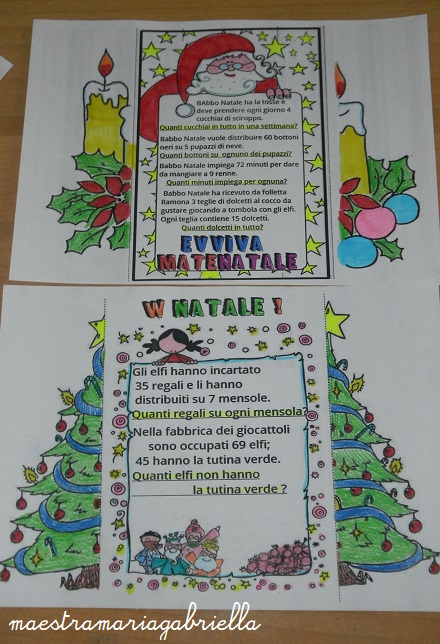 BAbbo Natale ha la tosse e
deve prendere ogni giorno 4
cucchiai di sciroppo.
Quanti cucchiai in tutto in una settimana?
Babbo Natale vuole distribuire 60 bottoni
neri su 5 pupazzi di neve.
Quanti bottoni su ognuno dei pupazzi?
Babbo Natale impiega 72 minuti per dare
da mangiare a 9 renne.
Quanti minuti impiega per ognuna?
Babbo Natale ha ricevuto da folletta
Ramona 3 teglie di dolcetti al cocco da
gustare giocando a tombola con gli elfi.
Ogni teglia contiene 15 dolcetti.
Quanti dolcetti in tutto?
EVVIVA
MATENATALE
W NATALE !
Gli elfi hanno incartato
35 regali e li hanno
distribuiti su 7 mensole.
Quanti regali su ogni mensola?
Nella fabbrica dei giocattoli
sono occupati 69 elfi;
45 hanno la tutina verde.
Quanti elfi non hanno
la tutina verde ?
maestramariagabriella